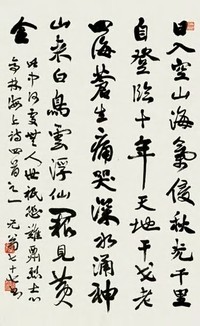 日入空山海氣侵秋光千里
自登臨十年天地干戈老
四海蒼生痛哭深水湧神
山來白鳥雲浮仙闕見黃
金
此中何處無人世祇恐難酬烈士心
亭林海上詩四首之一 元翁七十